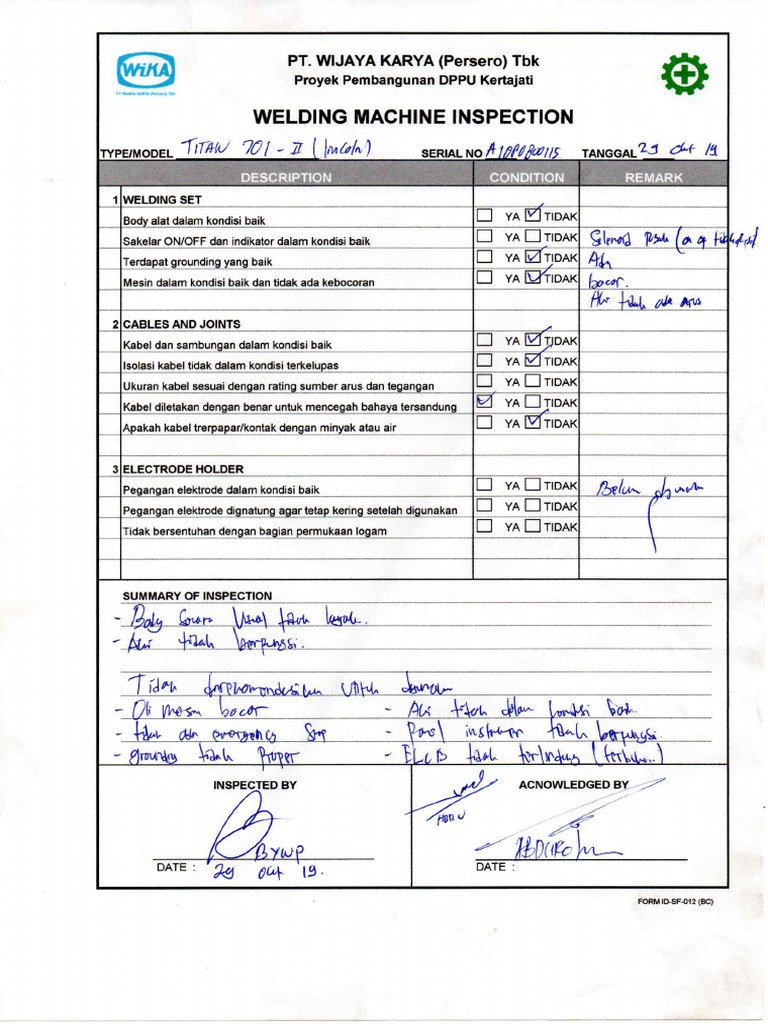 WiKA
PT WIJAYA KARYA (Persero) Tbk
PT. WIJAYA KARYA (Persero) Tbk
Proyek Pembangunan DPPU Kertajati
WELDING MACHINE INSPECTION
TYPE/MODEL TITAN 701 - II (lincoln) SERIAL NO TANGGAL 29 Okt 19
DESCRIPTION CONDITION REMARK
1 WELDING SET
Body alat dalam kondisi baik YA TIDAK
Sakelar ON/OFF dan indikator dalam kondisi baik YA TIDAK Selenoid Rusak (on of tidak
Terdapat grounding yang baik YA TIDAK Ada
Mesin dalam kondisi baik dan tidak ada kebocoran YA TIDAK bocor.
Aki tidak ada arus
2 CABLES AND JOINTS
Kabel dan sambungan dalam kondisi baik YA TIDAK
Isolasi kabel tidak dalam kondisi terkelupas YA TIDAK
Ukuran kabel sesuai dengan rating sumber arus dan tegangan YA TIDAK
Kabel diletakan dengan benar untuk mencegah bahaya tersandung YA TIDAK
Apakah kabel trerpapar/kontak dengan minyak atau air YA TIDAK
3 ELECTRODE HOLDER
Pegangan elektrode dalam kondisi baik YA TIDAK Belum digunakan
Pegangan elektrode dignatung agar tetap kering setelah digunakan YA TIDAK
Tidak bersentuhan dengan bagian permukaan logam YA TIDAK
SUMMARY OF INSPECTION
- Body Secara Visual tidak layak.
- Aki tidak berpungsi.
Tidak direkomendasikan untuk digunakan
- Oli mesin bocor - Aki tidak dalam kondisi baik.
- tidak ada emergency Stop - Panel instrumen tidak berpungsi.
- grounding tidak Proper - ELCB tidak terlindung (terbuka..)
INSPECTED BY ACNOWLEDGED BY
BYWP
DATE : 29 Okt 19. DATE :
FORM ID-SF-012 (BC)